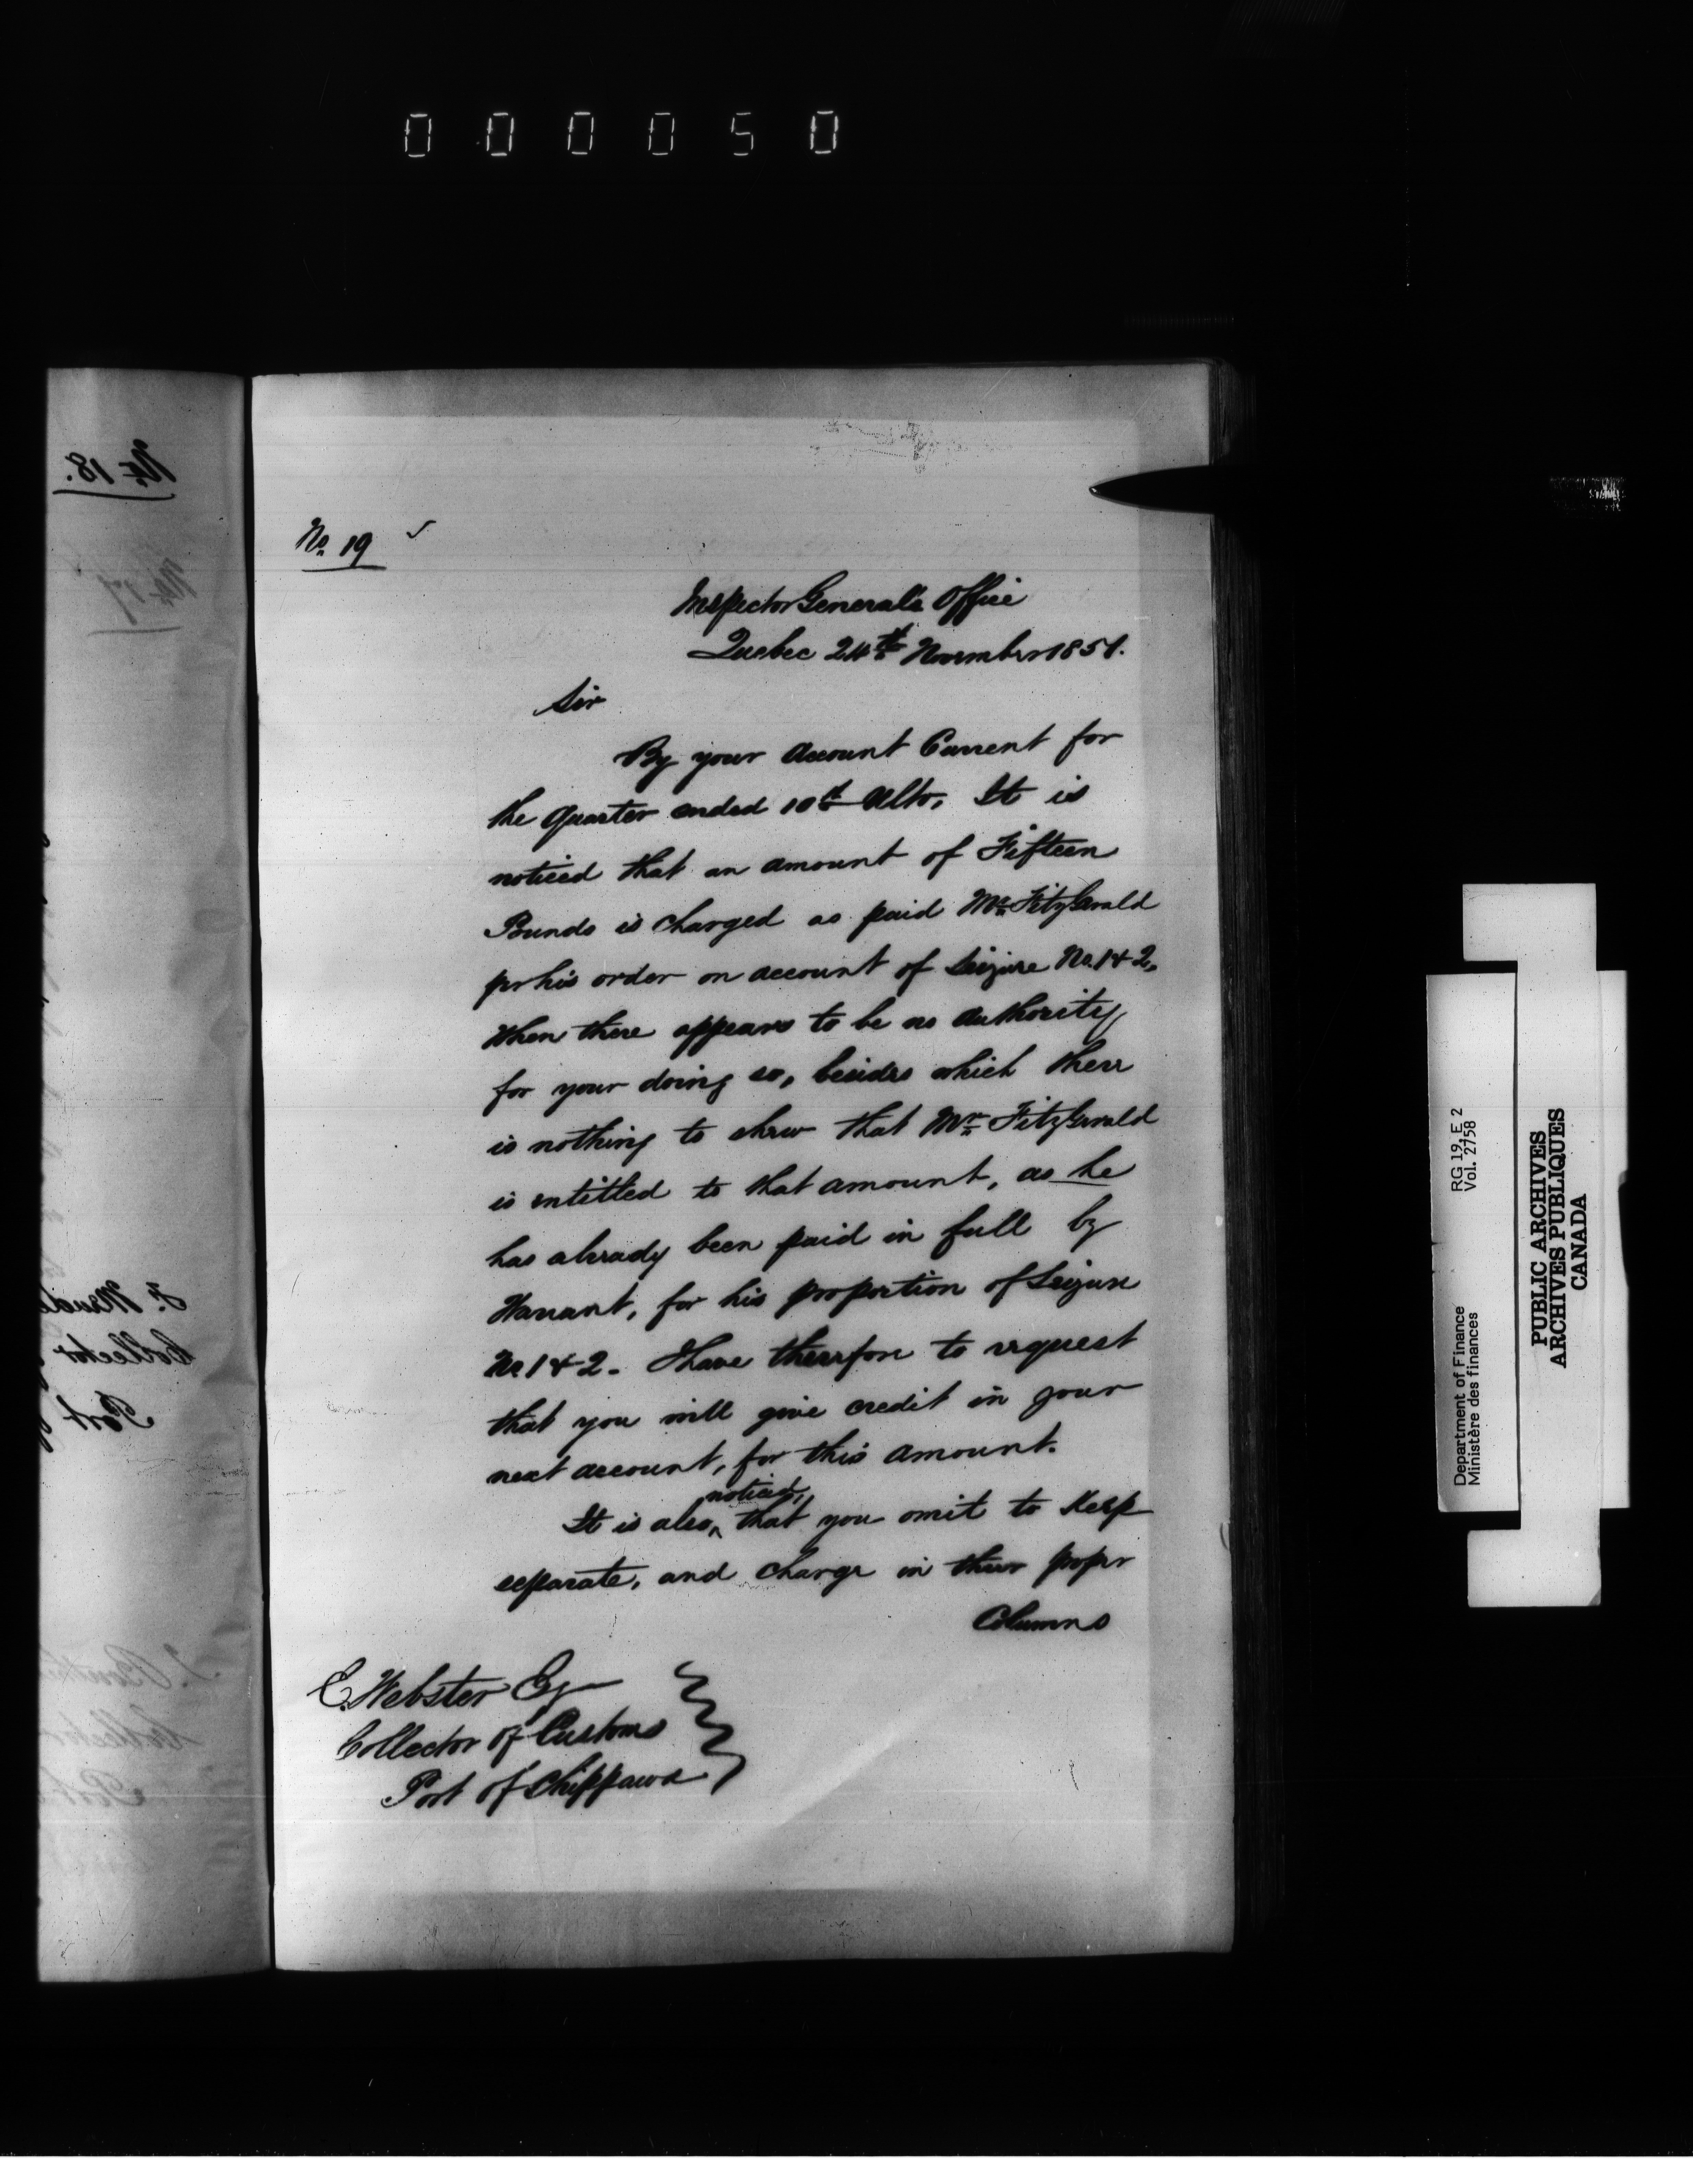 000050
No. 18.
No. 17
No. 19
Inspector Generals Office
Quebec 24th November 1851.
Sir
By your Account Current for
the Quarter ended 10th Ulto, It is
noticed that an amount of Fifteen
Pounds is charged as paid Mr. FitzGerald
pr his order on account of Seizure No. 1 & 2,
When there appears to be no authority
for your doing so, besides which there
is nothing to shew that Mr. FitzGerald
is entitled to that amount, as he
has already been paid in full by
Warrant, for his proportion of Seizure
No 1 & 2. I have therefore to request
that you will give credit in your
next account, for this amount.
It is also noticed, that you omit to Keep
separate, and charge in their proper
Columns
C. Webster Esq
Collector of Customs
Port of Chippawa
Collector
Port
Collector
Port
RG 19, E 2
Vol. 2758
Department of Finance
Ministère des finances
PUBLIC ARCHIVES
ARCHIVES PUBLIQUES
CANADA